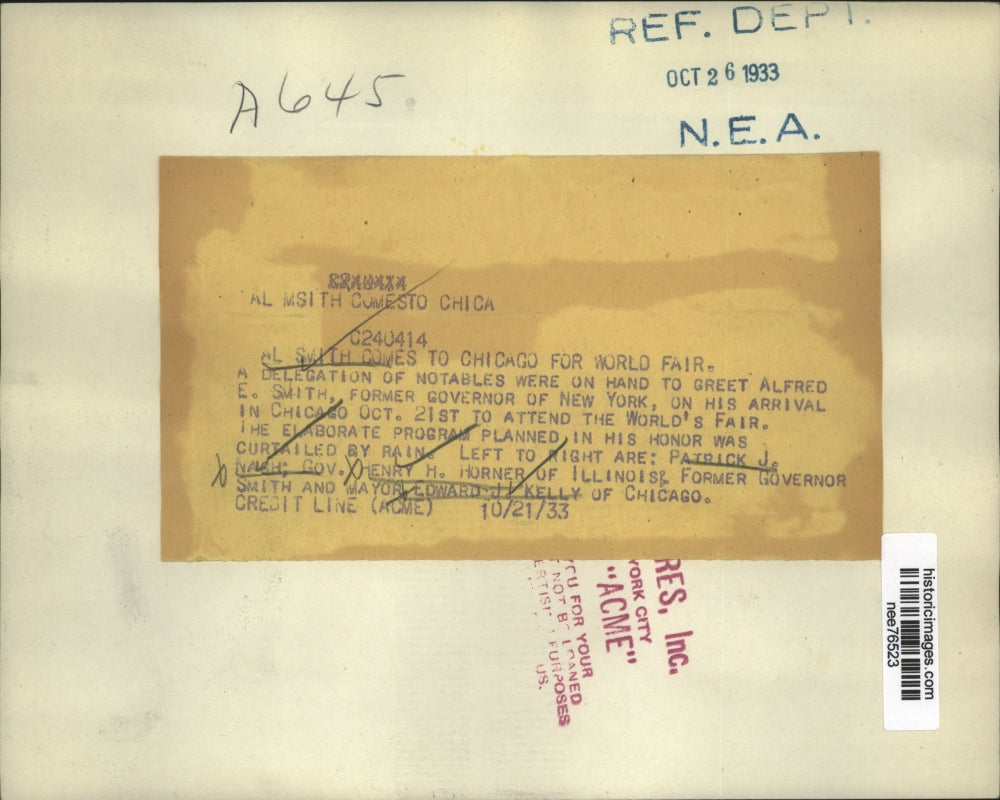 REF. DEPT.
OCT 26 1933
N.E.A.
A645
AL MSITH COMESTO CHICA
C240414
AL SMITH COMES TO CHICAGO FOR WORLD FAIR.
A DELEGATION OF NOTABLES WERE ON HAND TO GREET ALFRED
E. SMITH, FORMER GOVERNOR OF NEW YORK, ON HIS ARRIVAL
IN CHICAGO OCT. 21ST TO ATTEND THE WORLD'S FAIR.
THE ELABORATE PROGRAM PLANNED IN HIS HONOR WAS
CURTAILED BY RAIN. LEFT TO RIGHT ARE: PATRICK J.
NASH; GOV. HENRY H. HORNER OF ILLINOIS; FORMER GOVERNOR
SMITH AND MAYOR EDWARD J. KELLY OF CHICAGO.
CREDIT LINE (ACME) 10/21/33
RES, Inc.
YORK CITY
"ACME"
FOR YOUR
NOT B LOANED
PURPOSES
US.
historicimages.com
nee76523